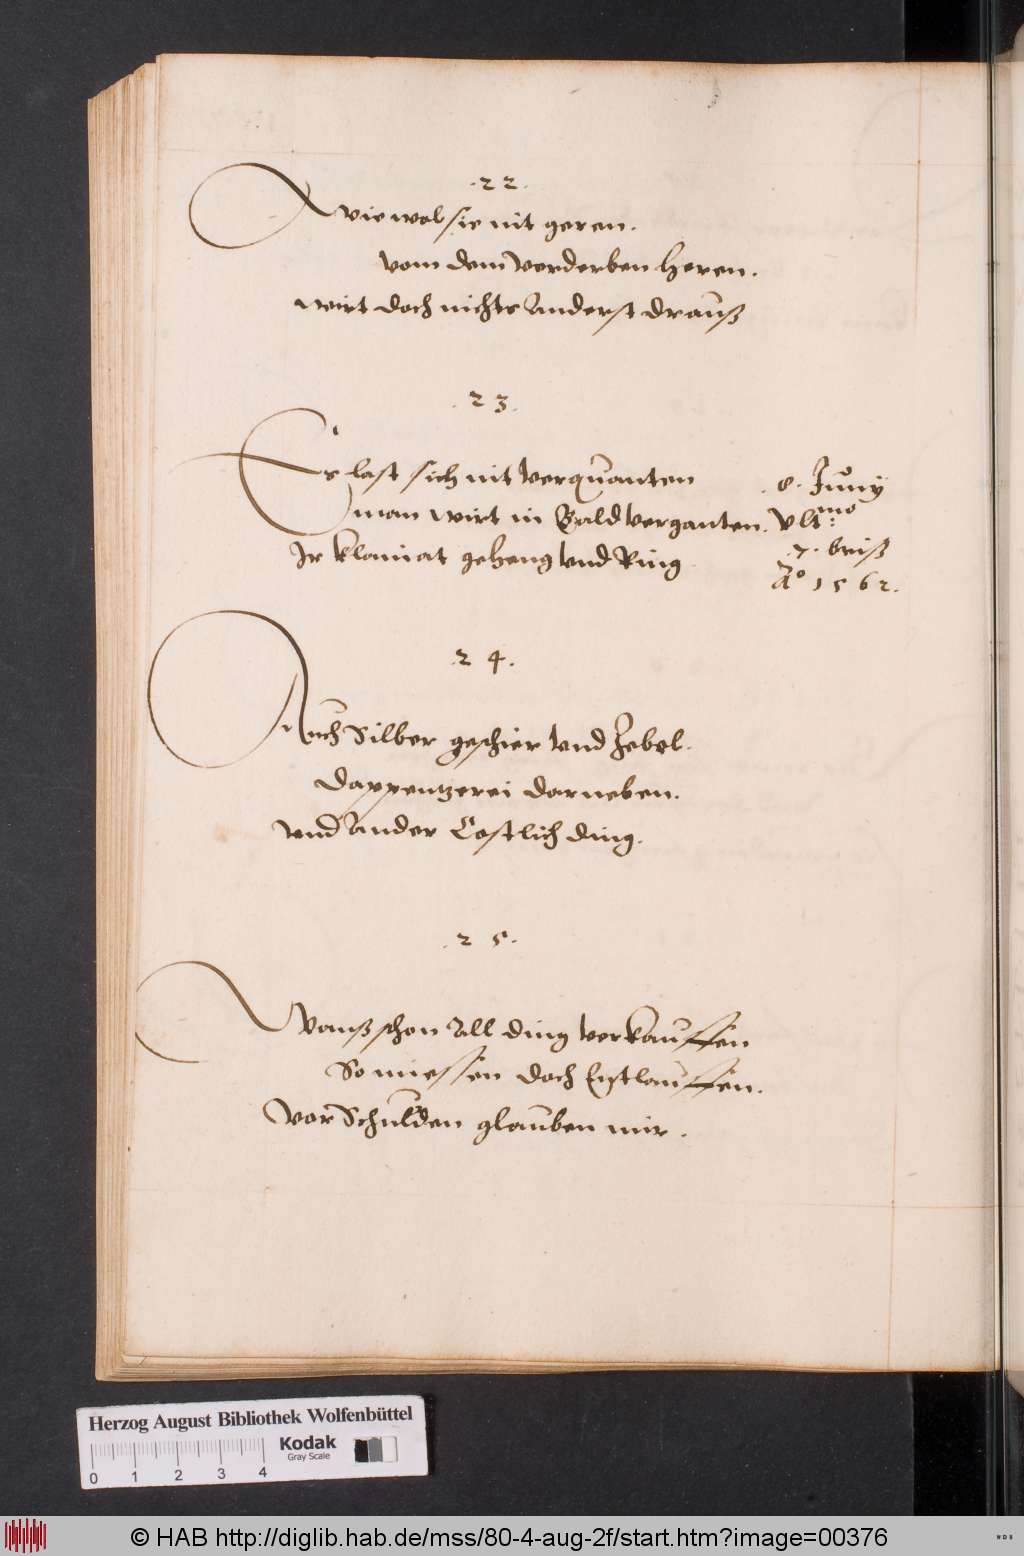 .22.
Wiewol sie nit geren.
vom dem verderben heren.
wirt doch nichts Anderst drauß
.23.
Es last sich nit verquanten
man wirt in Bald verganten.
Ir klainat geheng vnd Ring
.8. Juny
vltmo:
.7. briß
Ao 1562.
.24.
Auch Silber geschier vnd Zebel.
Dappentzerei darneben.
vnd Ander Costlich ding.
.25.
Wanß schon All ding verkauffen
So miessen doch Entlauffen.
Vor Schulden glauben mir.
Herzog August Bibliothek Wolfenbüttel
Kodak
Gray Scale
0 1 2 3 4
© HAB http://diglib.hab.de/mss/80-4-aug-2f/start.htm?image=00376